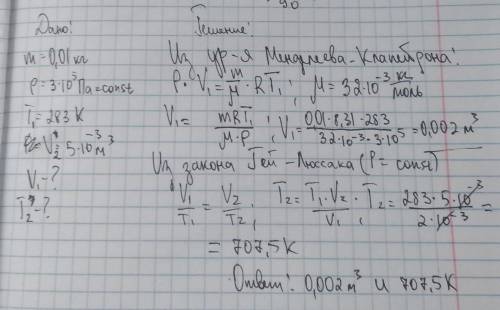 90
Дано:
m = 0,01 кг
P = 3·10⁵ Па = const
T₁ = 283 К
V₂ = 5·10⁻³ м³
V₁ - ?
T₂ - ?
Решение:
Из ур-я Менделеева-Клапейрона:
P·V₁ = m/μ · RT₁; μ = 32·10⁻³ кг/моль
V₁ = mRT₁/μ·P; V₁ = 0,01·8,31·283/32·10⁻³·3·10⁵ = 0,002 м³
Из закона Гей-Люссака (P = const)
V₁/T₁ = V₂/T₂; T₂ = T₁·V₂/V₁; T₂ = 283·5·10⁻³/2·10⁻³ =
= 707,5 К
Ответ: 0,002 м³ и 707,5 К